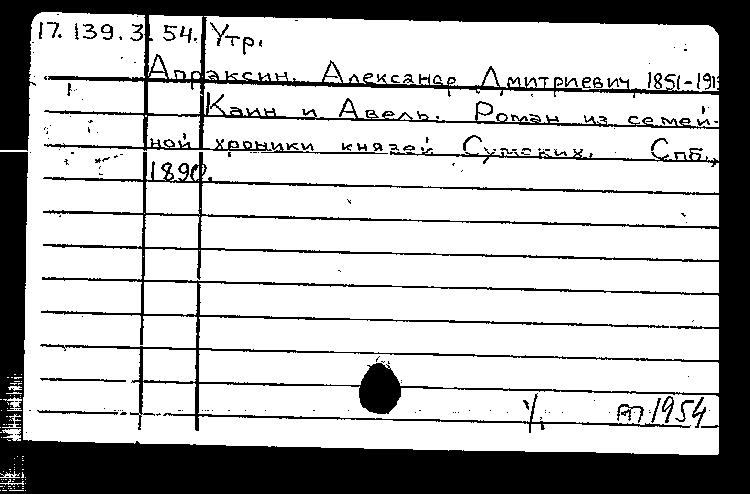 17. 139. 3. 54. Утр.
Апраксин, Александр Дмитриевич, 1851-1913
Каин и Авель. Роман из семей-
ной хроники князей Сумских. Спб.,
1890.
1954